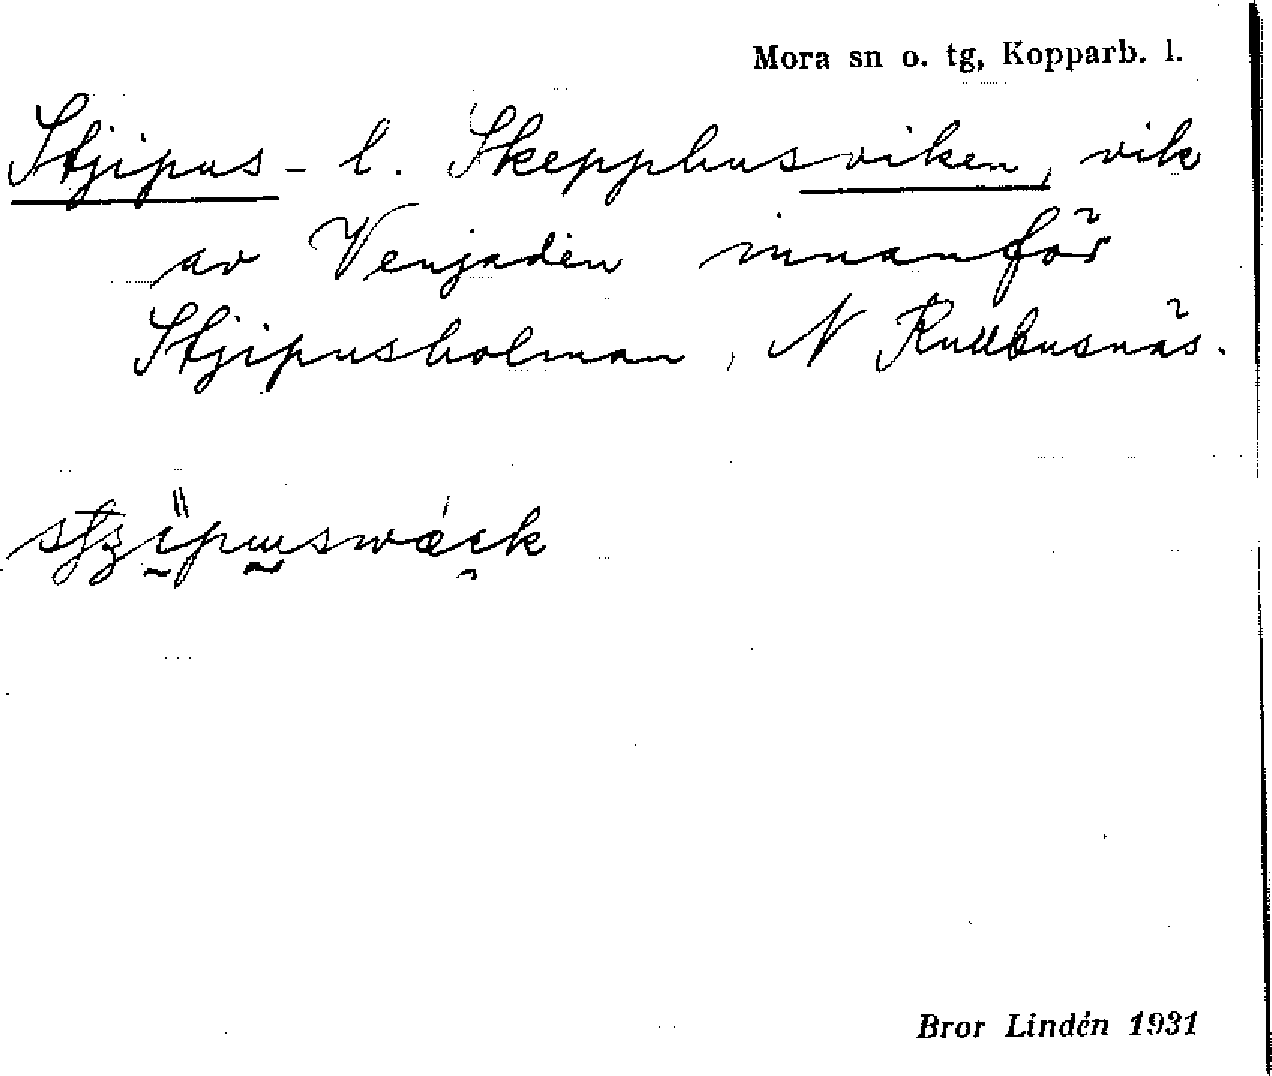 Mora sn o. tg, Kopparb. l.
Stjipus- l. Skepphusviken, vik
av Venjaden innanför
Stjipusholman, N Rullbusnäs.
Bror Lindén 1931